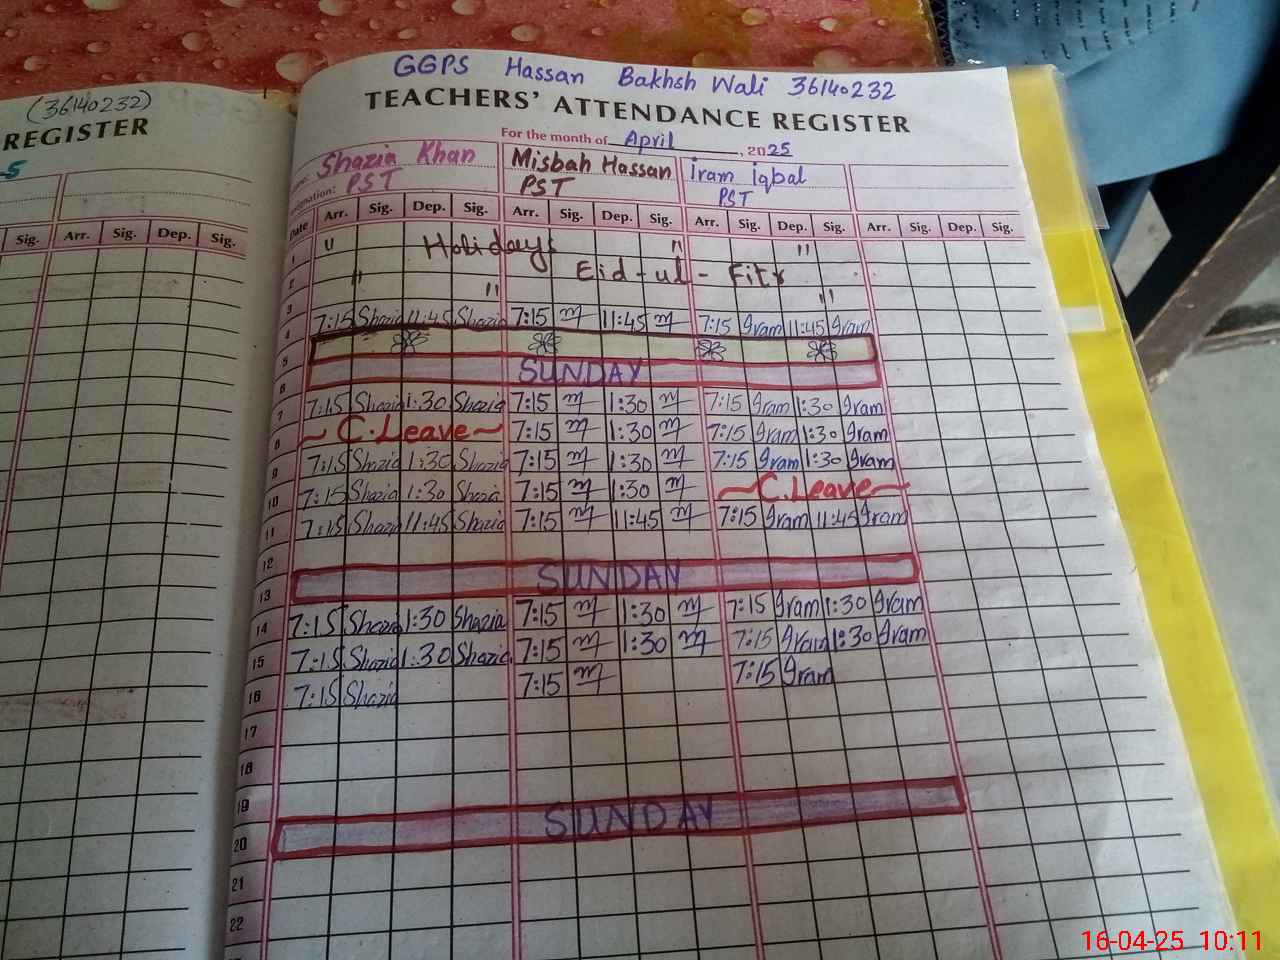 (36140232)
REGISTER
Sig. Arr. Sig. Dep. Sig.
GGPS Hassan Bakhsh Wali 36140232
TEACHERS' ATTENDANCE REGISTER
For the month of April, 2025
Shazia Khan Misbah Hassan Iram iqbal
PST PST PST
Date Arr. Sig. Dep. Sig. Arr. Sig. Dep. Sig. Arr. Sig. Dep. Sig. Arr. Sig. Dep. Sig.
1 " Holidays " "
2 " Eid-ul-Fitr
3 " "
4 7:15 Shazia 11:45 Shazia 7:15 m 11:45 m 7:15 Iram 11:45 Iram
5
6 SUNDAY
7 7:15 Shazia 1:30 Shazia 7:15 m 1:30 m 7:15 Iram 1:30 Iram
8 ~ C.Leave ~ 7:15 m 1:30 m 7:15 Iram 1:30 Iram
9 7:15 Shazia 1:30 Shazia 7:15 m 1:30 m 7:15 Iram 1:30 Iram
10 7:15 Shazia 1:30 Shazia 7:15 m 1:30 m ~ C.Leave ~
11 7:15 Shazia 11:45 Shazia 7:15 m 11:45 m 7:15 Iram 11:45 Iram
12
13 SUNDAY
14 7:15 Shazia 1:30 Shazia 7:15 m 1:30 m 7:15 Iram 1:30 Iram
15 7:15 Shazia 1:30 Shazia 7:15 m 1:30 m 7:15 Iram 1:30 Iram
16 7:15 Shazia 7:15 m 7:15 Iram
17
18
19
20 SUNDAY
21
22
16-04-25 10:11